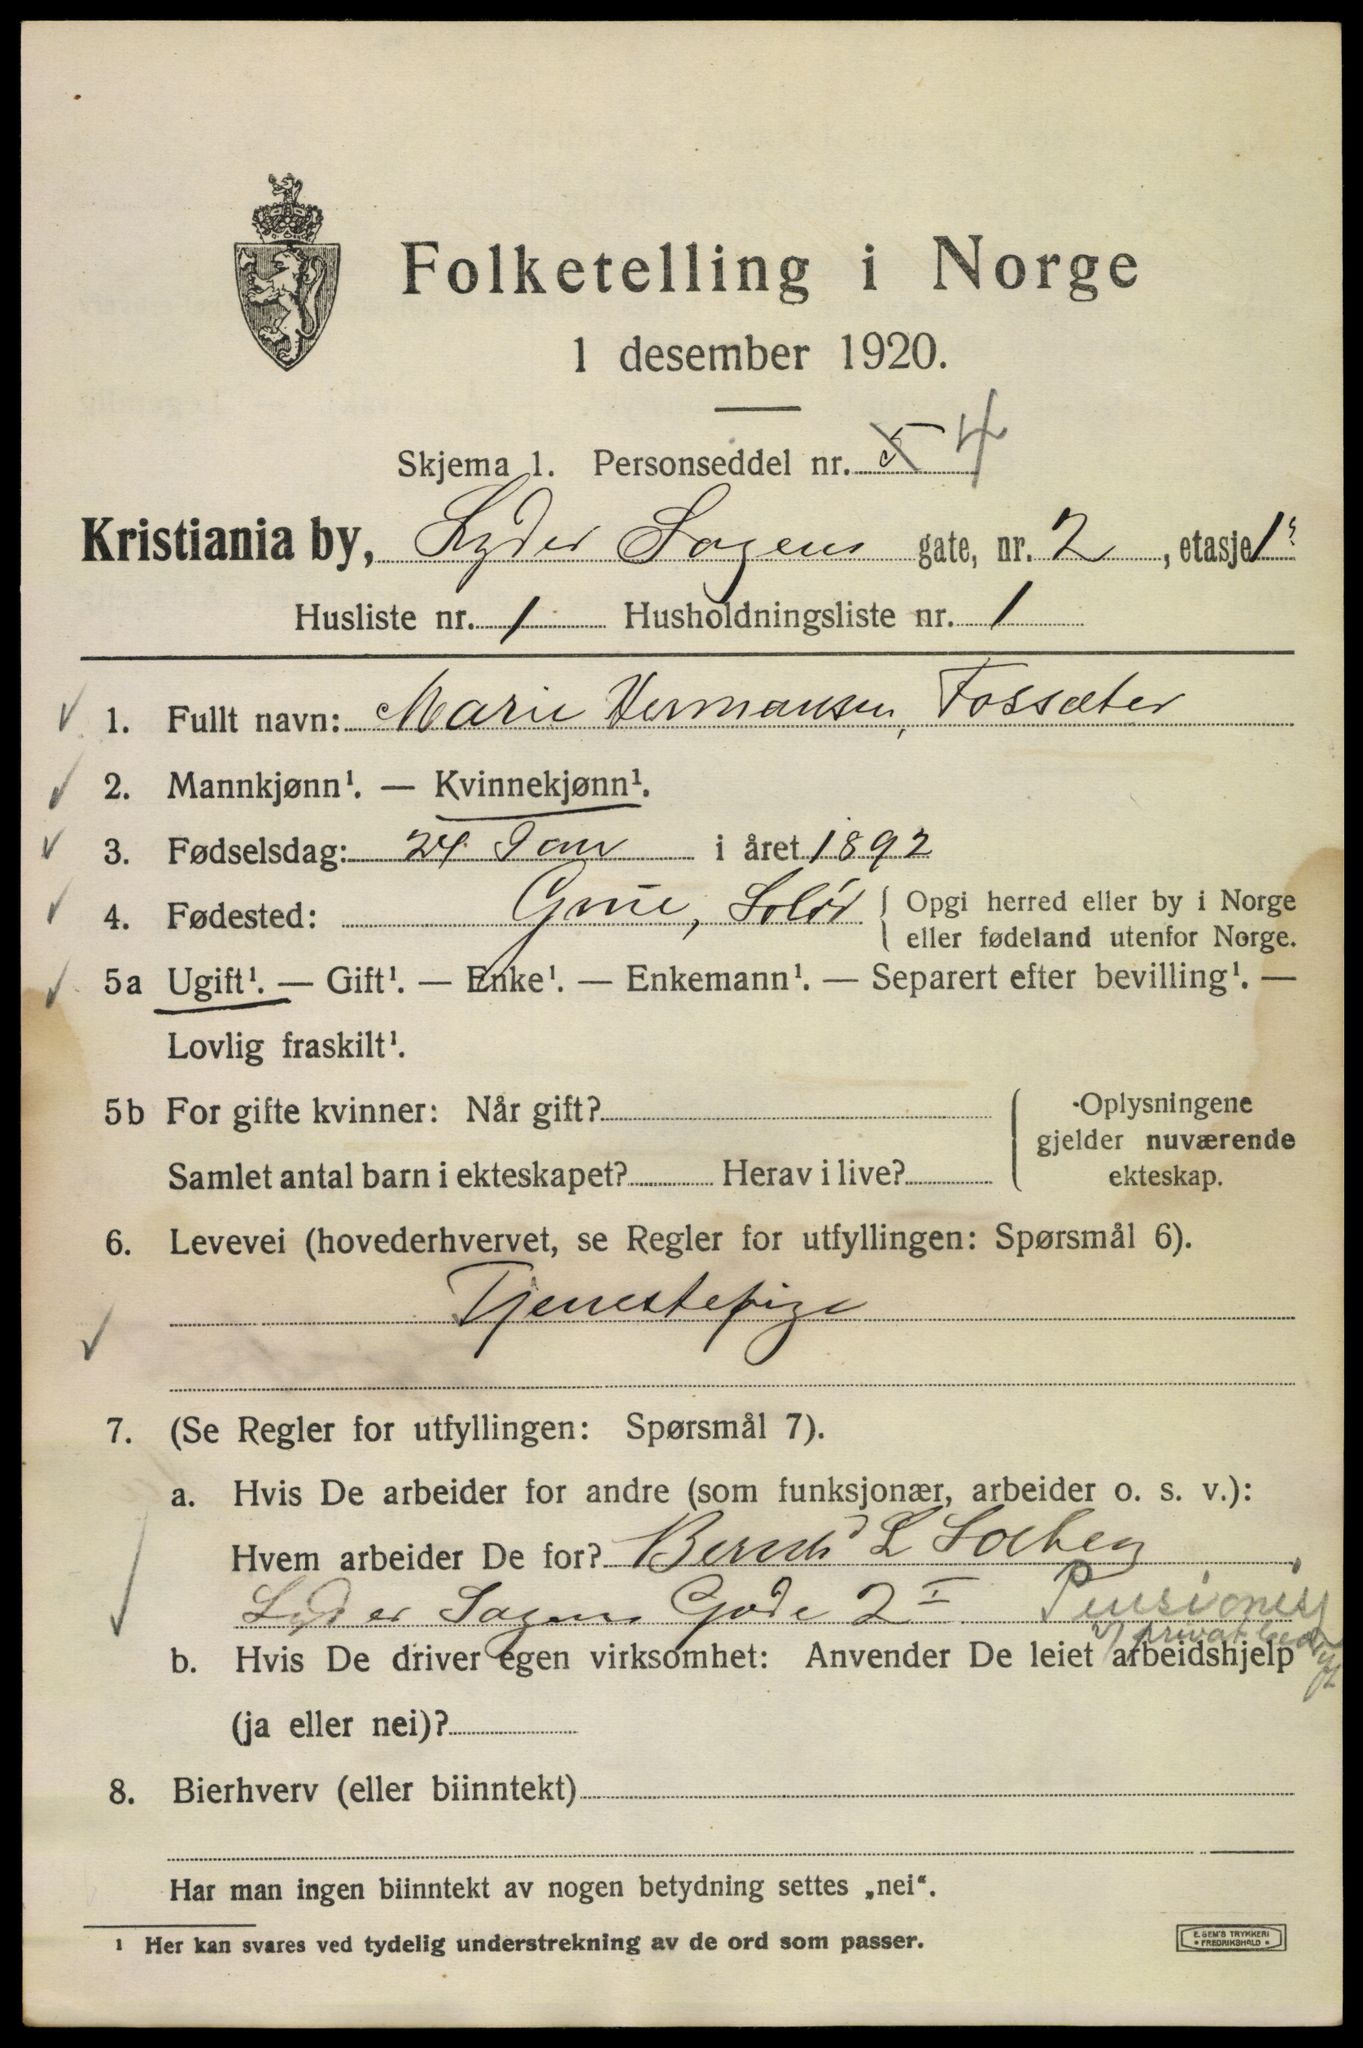 Folketelling i Norge
1 desember 1920.
Skjema 1. Personseddel nr. 5 4
Kristiania by, Lyder Sagens gate, nr. 2, etasje 1
Husliste nr. 1 Husholdningsliste nr. 1
1. Fullt navn: Marie Hermansen, Fossæter
2. Mannkjønn¹. — Kvinnekjønn¹.
3. Fødselsdag: 24 Jan i året 1892
4. Fødested: Grue, Solør { Opgi herred eller by i Norge
eller fødeland utenfor Norge.
5a Ugift¹. — Gift¹. — Enke¹. — Enkemann¹. — Separert efter bevilling¹. —
Lovlig fraskilt¹.
5b For gifte kvinner: Når gift?
Samlet antal barn i ekteskapet? Herav i live?
Oplysningene
gjelder nuværende
ekteskap.
6. Levevei (hovederhvervet, se Regler for utfyllingen: Spørsmål 6).
Tjenestepige
7. (Se Regler for utfyllingen: Spørsmål 7).
a. Hvis De arbeider for andre (som funksjonær, arbeider o. s. v.):
Hvem arbeider De for? L
Lyder Sagens Gade 2 I Pensionist
v/ privat bedrift
b. Hvis De driver egen virksomhet: Anvender De leiet arbeidshjelp
(ja eller nei)?
8. Bierhverv (eller biinntekt)
Har man ingen biinntekt av nogen betydning settes „nei“.
¹ Her kan svares ved tydelig understrekning av de ord som passer.
E. SEM'S TRYKKERI
• FREDRIKSHALD •